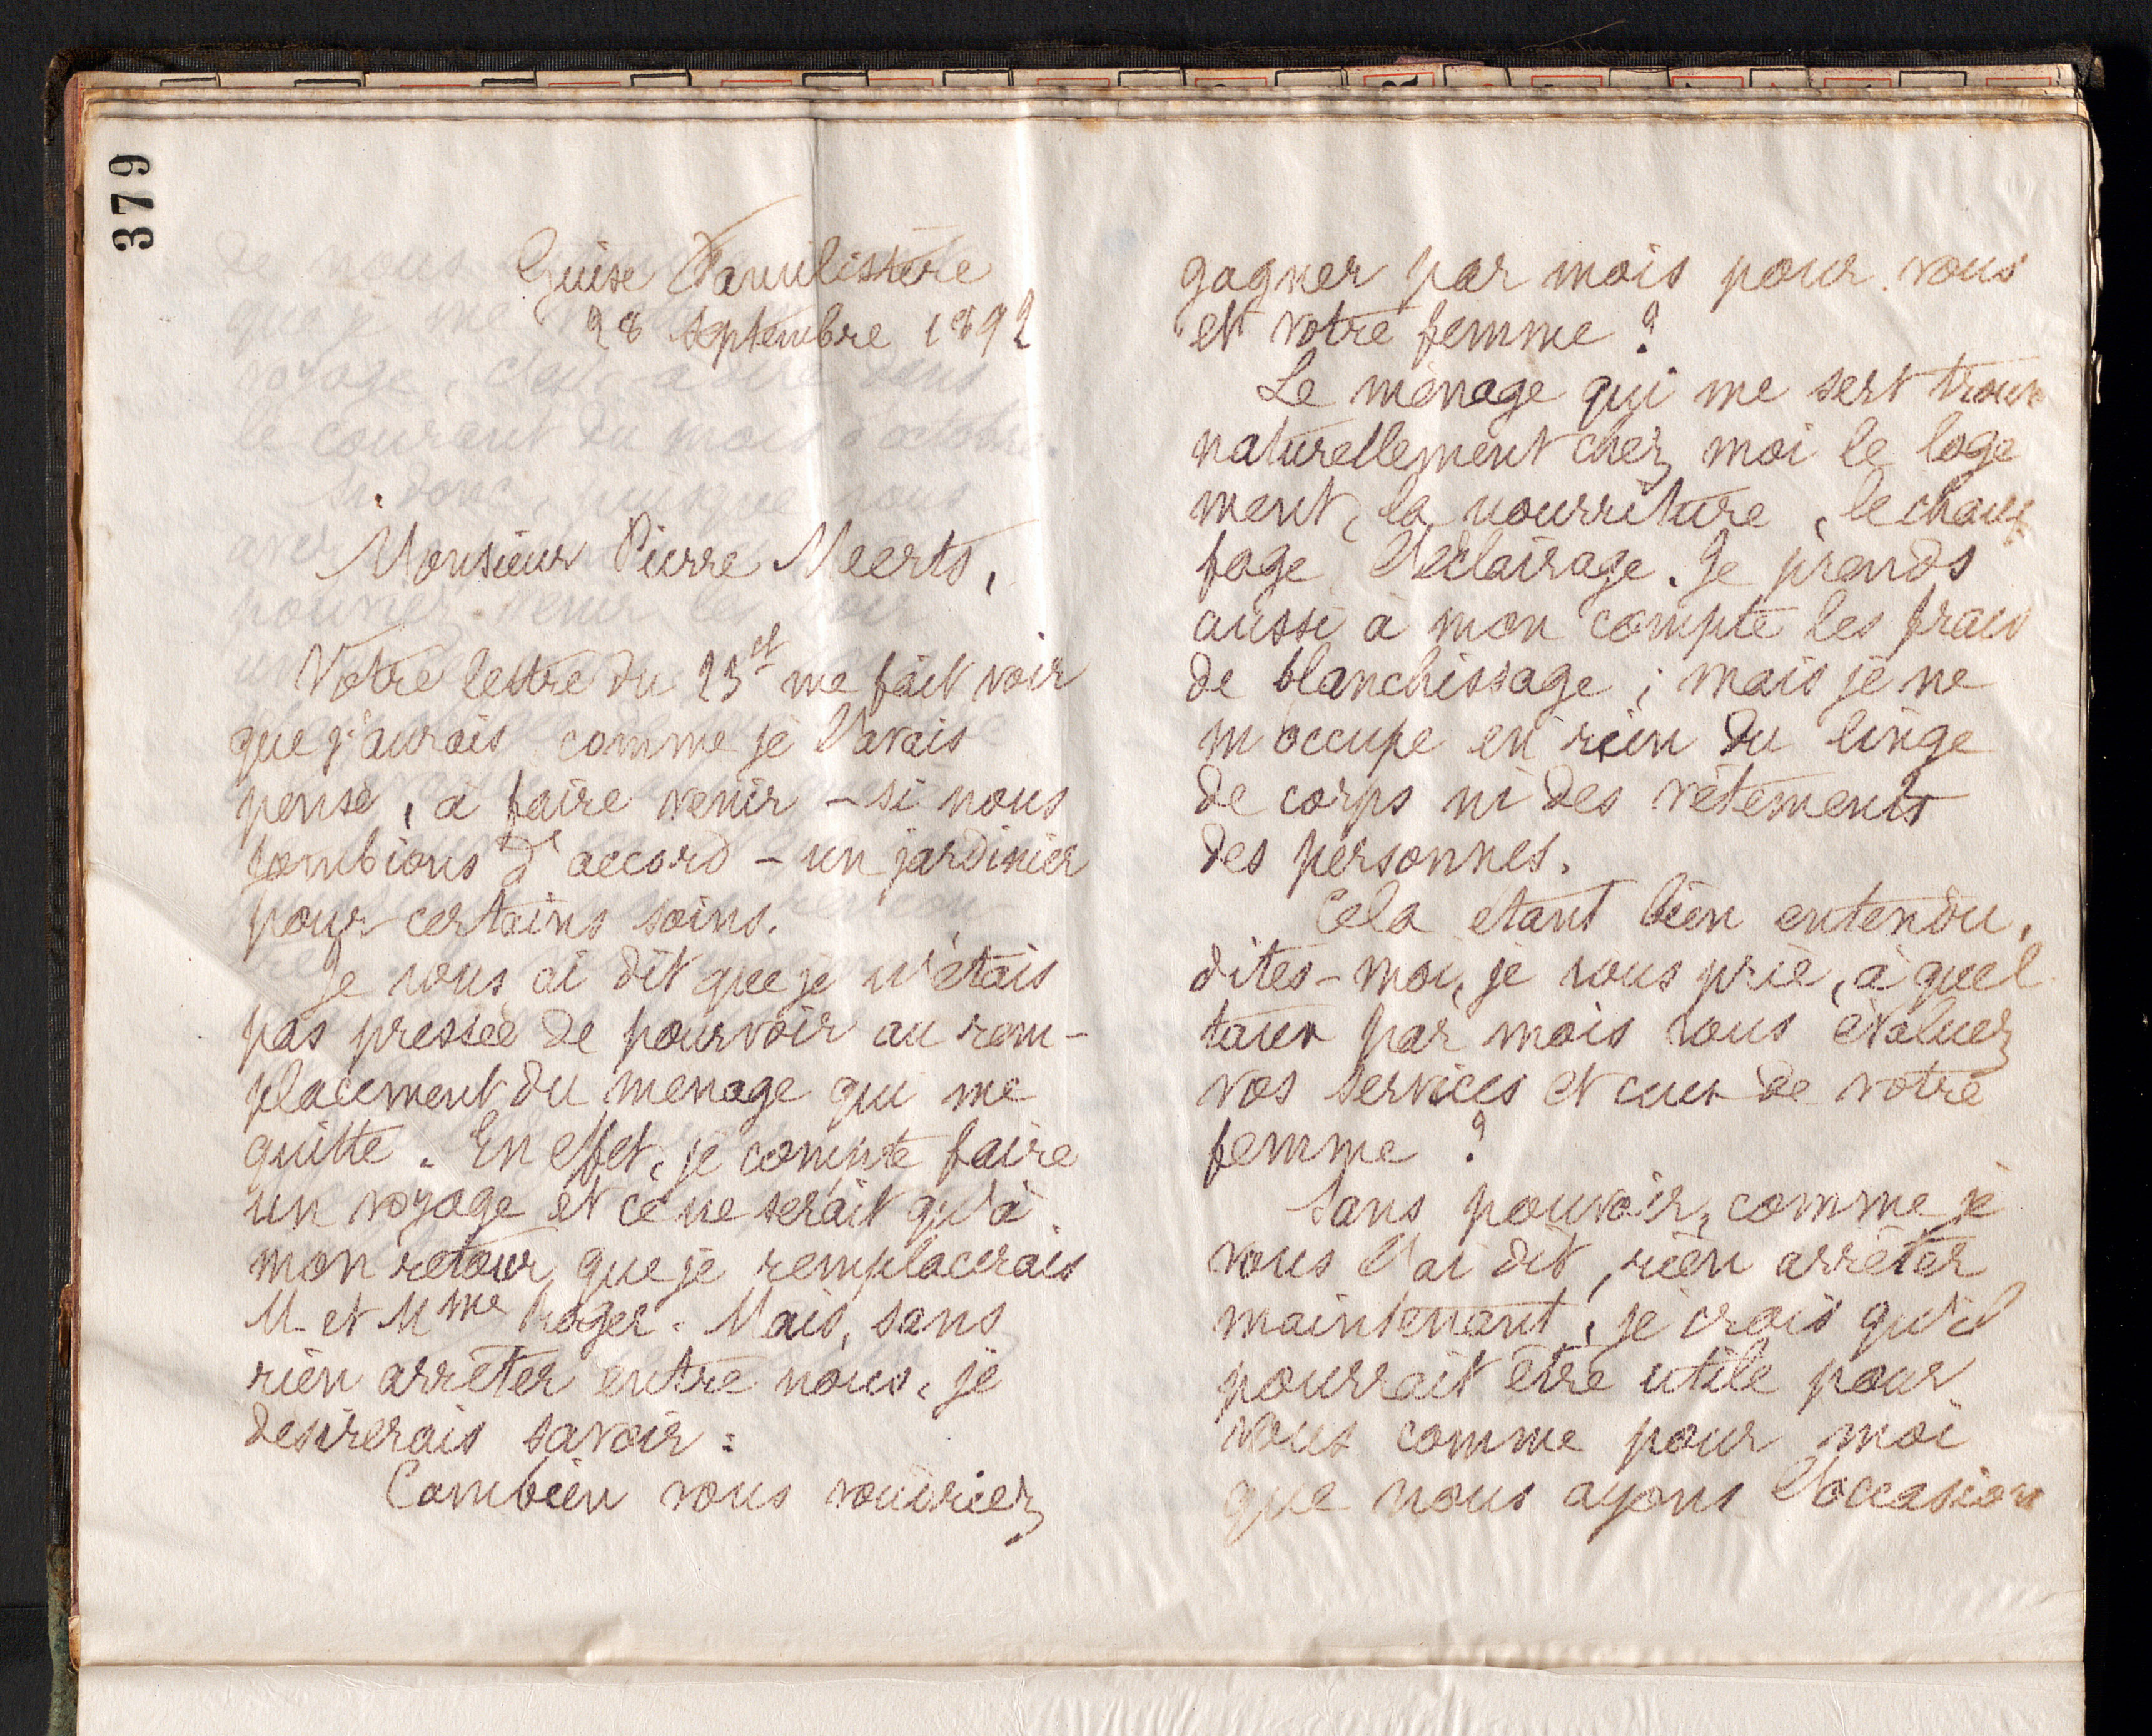 379
Guise Familistère
28 septembre 1892
Monsieur Pierre Meerts,
Votre lettre du 23 ct me fait voir
que j'aurais comme je l'avais
pensé, à faire venir - si nous
tombions d'accord - un jardinier
pour certains soins.
Je vous ai dit que je n'étais
pas pressée de pourvoir au rem-
placement du menage qui me
quitte. En effet, je compte faire
un voyage et ce ne serait qu'à
mon retour que je remplacerais
M. et Mme Roger. Mais, sans
rien arrêter entre nous, je
desirerais savoir :
Combien vous voudriez
gagner par mois pour vous
et votre femme ?
Le ménage qui me sert trouve
naturellement chez moi le loge
ment, la nourriture, le chauf
fage l'éclairage. Je prends
aussi à mon compte les frais
de blanchissage ; mais je ne
m'occupe en rien du linge
de corps ni des vêtements
des personnes.
Cela etant bien entendu,
dites-moi, je vous prie, à quel
taux par mois vous évaluez
vos services et ceux de votre
femme ?
Sans pouvoir, comme je
vous l'ai dit, rien arrêter
maintenant, je crois qu'il
pourrait être utile pour
vous comme pour moi
que nous ayons l'occasion